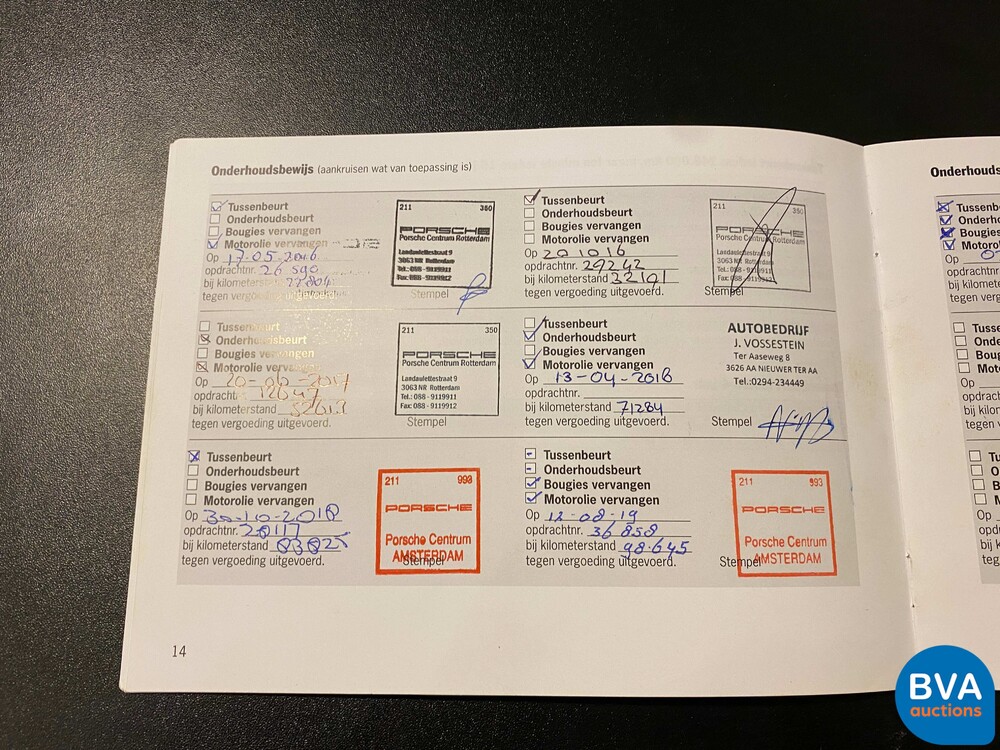 Onderhoudsbewijs (aankruisen wat van toepassing is)
Tussenbeurt
Onderhoudsbeurt
Bougies vervangen
Motorolie vervangen
Op 17-05-2016
opdrachtnr.
bij kilometerstand
tegen vergoeding uitgevoerd.
211
PORSCHE
Porsche Centrum Rotterdam
Landaulettestraat 9
3063 NR Rotterdam
Tel.: 088 - 9119911
Fax: 088 - 9119912
Stempel
Tussenbeurt
Onderhoudsbeurt
Bougies vervangen
Motorolie vervangen
Op 201016
opdrachtnr. 29242
bij kilometerstand 32191
tegen vergoeding uitgevoerd.
211 350
PORSCHE
Porsche Centrum Rotterdam
Stempel
Tussenbeurt
Onderhoudsbeurt
Bougies vervangen
Motorolie vervangen
Op 20-06-2017
opdrachtnr. 12647
bij kilometerstand
tegen vergoeding uitgevoerd.
211 350
PORSCHE
Porsche Centrum Rotterdam
Landaulettestraat 9
3063 NR Rotterdam
Tel.: 088 - 9119911
Fax: 088 - 9119912
Stempel
Tussenbeurt
Onderhoudsbeurt
Bougies vervangen
Motorolie vervangen
Op 13-04-2018
opdrachtnr.
bij kilometerstand 71284
tegen vergoeding uitgevoerd.
AUTOBEDRIJF
J. VOSSESTEIN
Ter Aaseweg 8
3626 AA NIEUWER TER AA
Tel.:0294-234449
Stempel
Tussenbeurt
Onderhoudsbeurt
Bougies vervangen
Motorolie vervangen
Op 30-10-2018
opdrachtnr. 20117
bij kilometerstand
tegen vergoeding uitgevoerd.
211 993
PORSCHE
Porsche Centrum
AMSTERDAM
Stempel
Tussenbeurt
Onderhoudsbeurt
Bougies vervangen
Motorolie vervangen
Op 12-08-19
opdrachtnr. 36858
bij kilometerstand 98.645
tegen vergoeding uitgevoerd.
211 993
PORSCHE
Porsche Centrum
AMSTERDAM
Stempel
14
Onderhouds
Tussenb
Onder
Bougies
Motor
Op
opdrac
bij kilo
tegen
Tussen
Onder
Bougi
Motor
Op
opdrac
bij kilo
tegen
Tu
On
Bo
Mo
Op
opdr
bij ki
teg
BVA
auctions